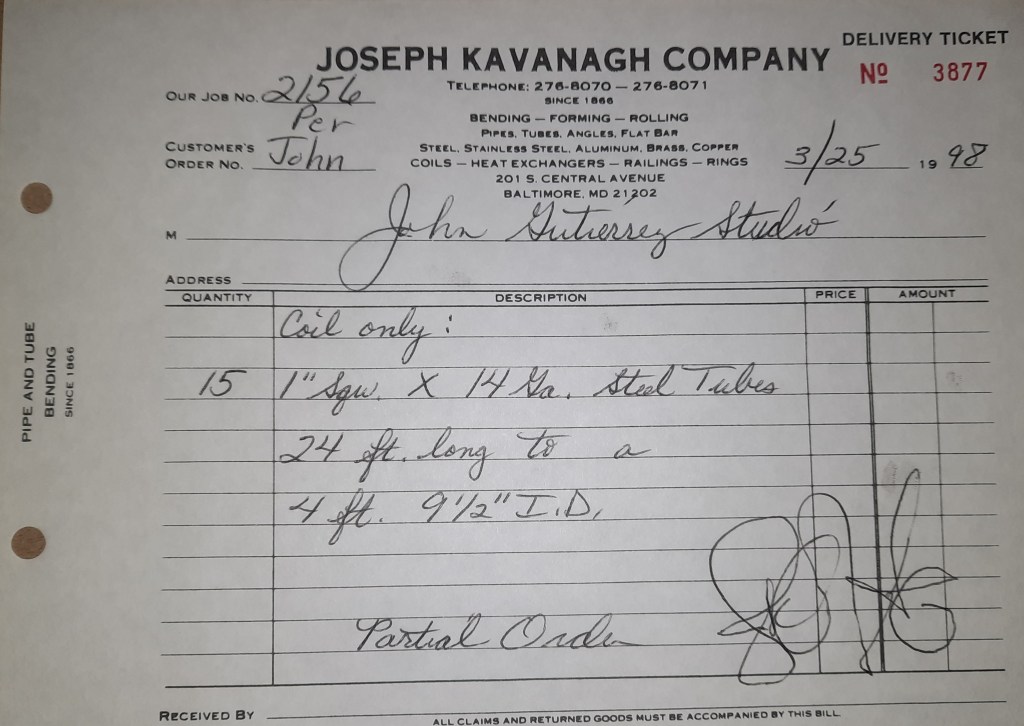 DELIVERY TICKET
JOSEPH KAVANAGH COMPANY
Nº 3877
OUR JOB NO. 2156
TELEPHONE: 276-8070 — 276-8071
SINCE 1866
Per
BENDING — FORMING — ROLLING
PIPES, TUBES, ANGLES, FLAT BAR
CUSTOMER'S
ORDER NO. John
STEEL, STAINLESS STEEL, ALUMINUM, BRASS, COPPER
COILS — HEAT EXCHANGERS — RAILINGS — RINGS
3/25 19 98
201 S. CENTRAL AVENUE
BALTIMORE, MD 21202
M John Gutiérrez Studio
ADDRESS
QUANTITY DESCRIPTION PRICE AMOUNT
Coil only :
15 1" Sqw. X 14 Ga. Steel Tubes
24 ft. long to a
4 ft. 9 1/2" I.D.
Partial Order
RECEIVED BY
ALL CLAIMS AND RETURNED GOODS MUST BE ACCOMPANIED BY THIS BILL
PIPE AND TUBE
BENDING
SINCE 1866